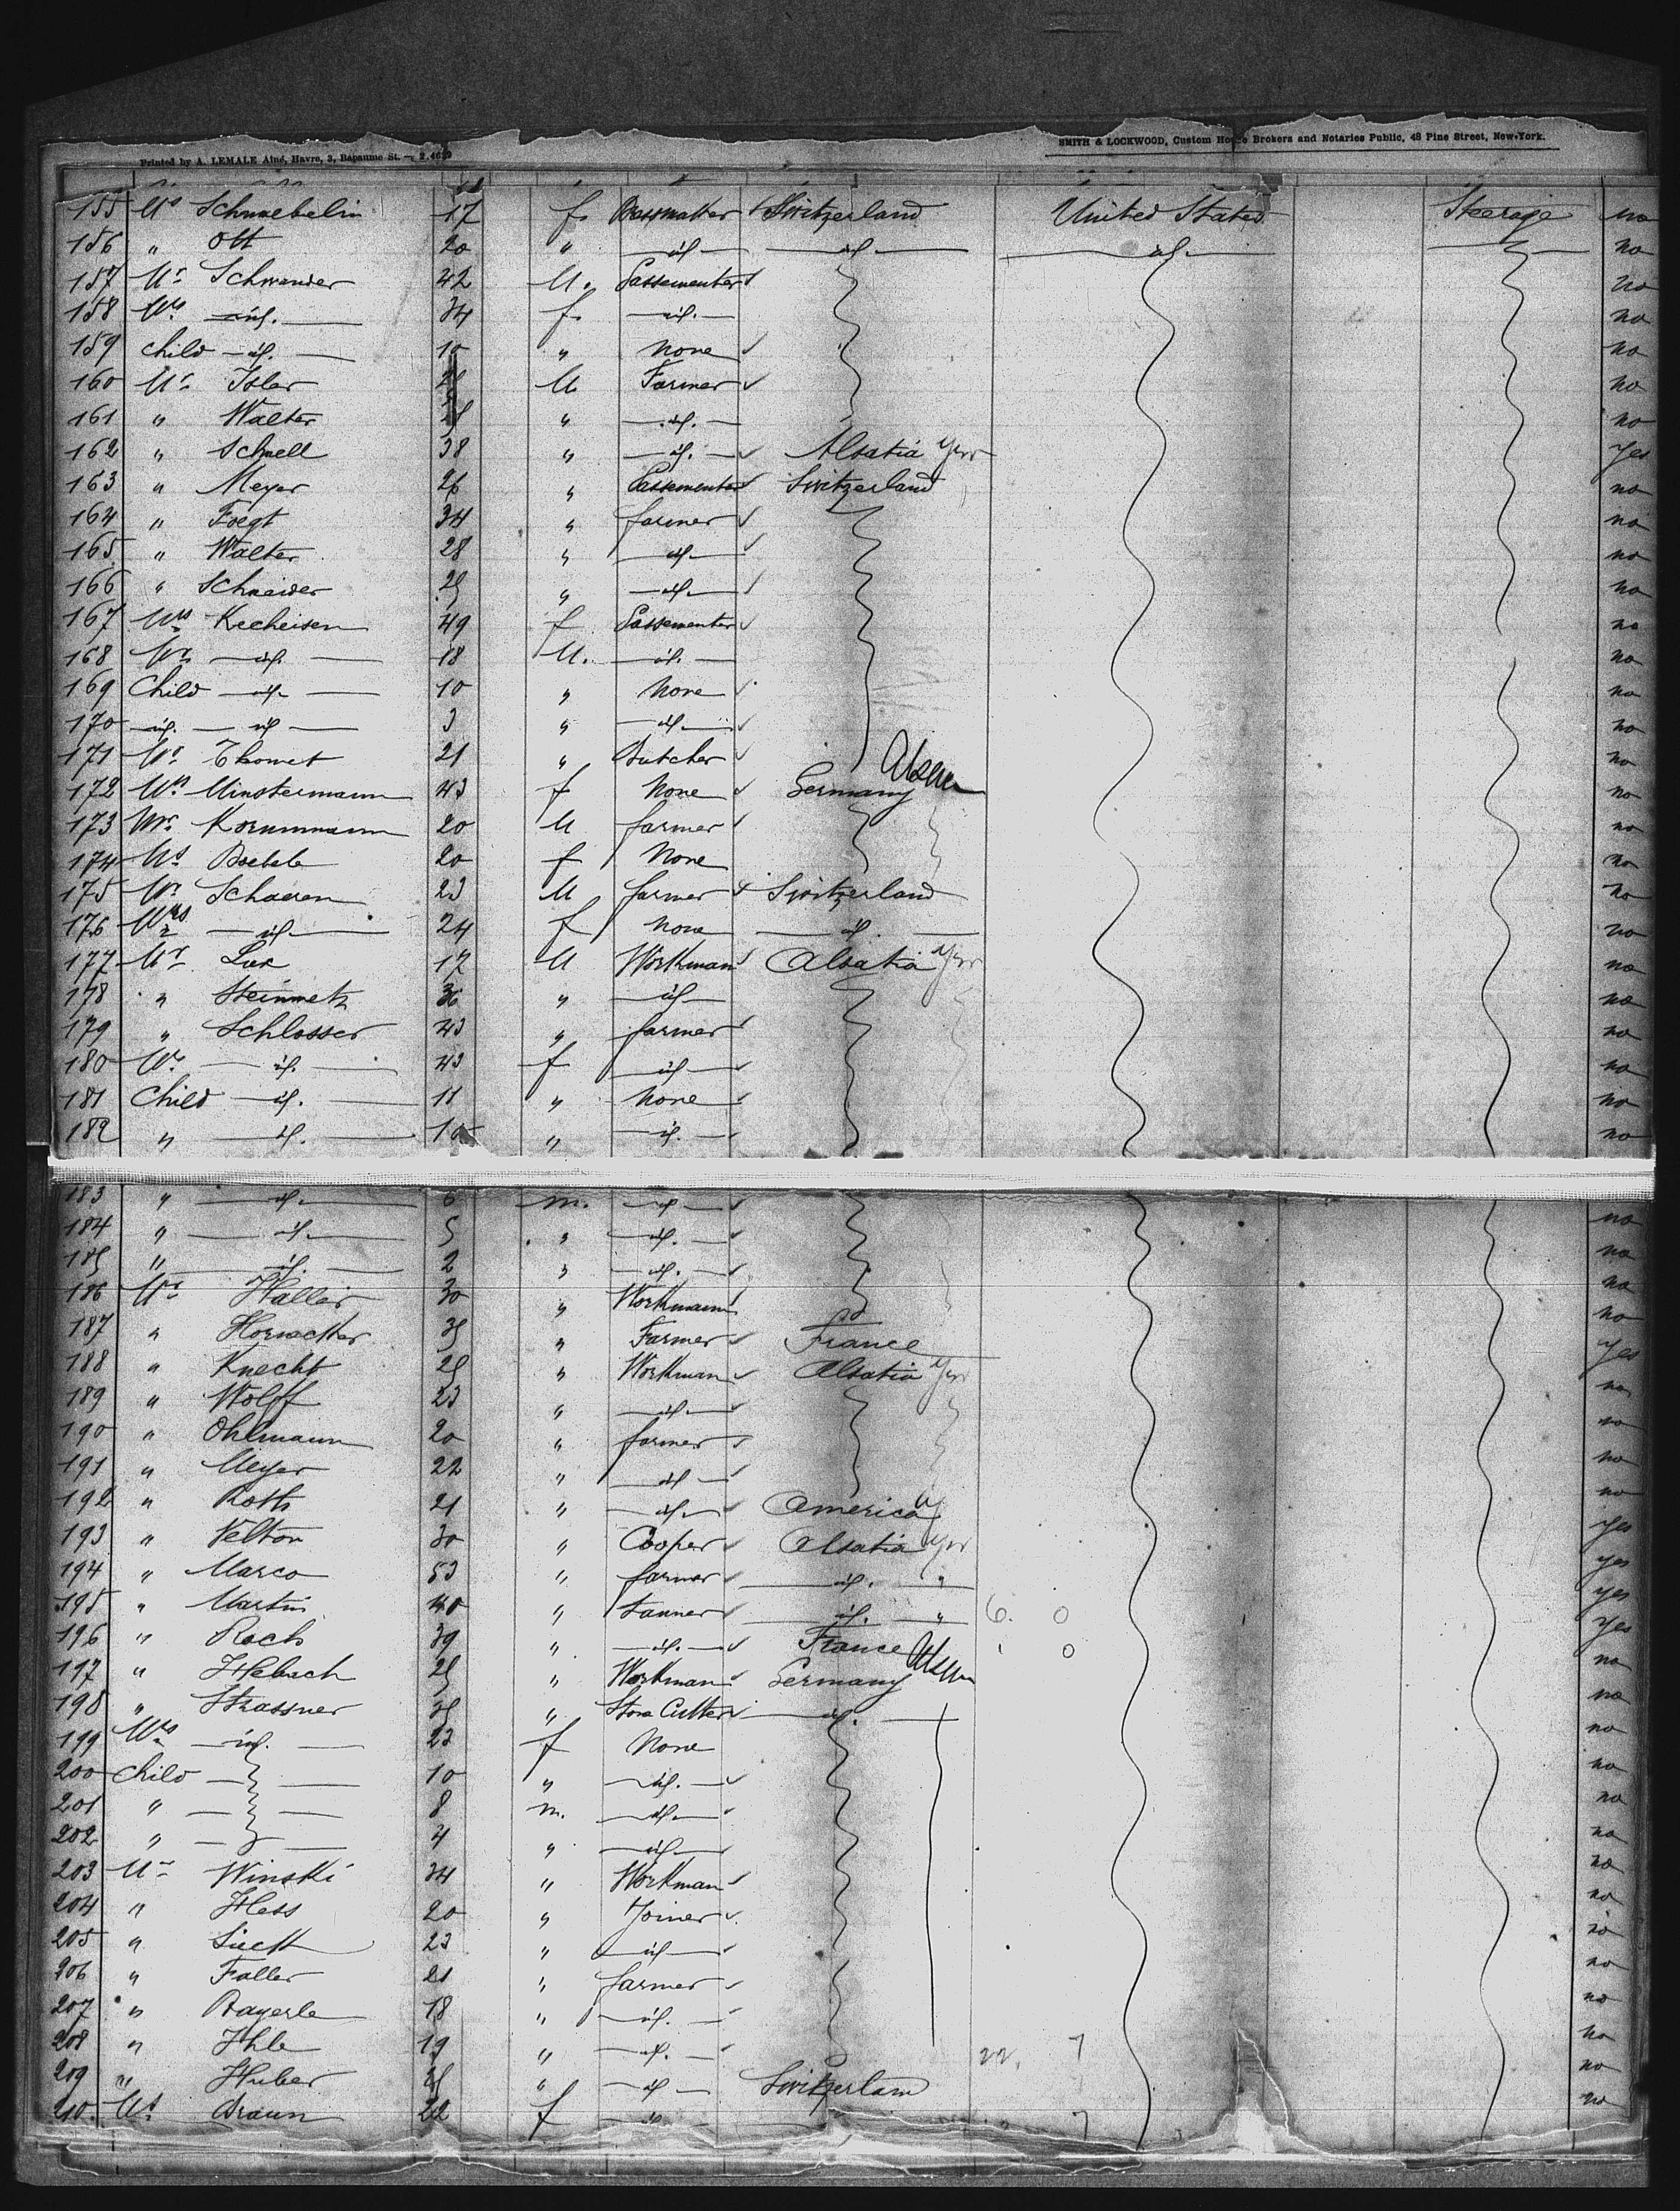 Printed by A. LEMALE Aîné, Havre, 3, Bapaume St. — 2.4639
SMITH & LOCKWOOD, Custom House Brokers and Notaries Public, 48 Pine Street, New-York.
155 Ms Schnaebelin 17 f. Switzerland United States Steerage no
156 " Ott 20 " id id id no
157 Mr Schwander 42 M. Passementer no
158 Ms id. 34 f. id. no
159 child id. 10 " none no
160 Mr Isler M Farmer no
161 " Walter " id. no
162 " Schnell 38 " id. Alsatia Yes
163 " Meyer 26 " Passementer Switzerland no
164 " Foegt 34 " farmer no
165 " Walter 28 " id no
166 " Schneider 25 " id no
167 Mrs Kecheisen 49 f Passementer no
168 Mr id. 18 M. id. no
169 Child id 10 " none no
170 id. id 3 " id no
171 Mr Thomet 21 " Butcher no
172 Ms Minstermann 43 f None Germany no
173 Mr Kornmann 20 M farmer no
174 Ms Boehele 20 f None no
175 Mr Schaeren 23 M farmer Switzerland no
176 Mrs id 24 f none id. no
177 Mr Lux 17 M Workman Alsatia no
178 " Steinmetz 36 " id no
179 " Schlosser 43 " farmer no
180 Ms id. 43 f id no
181 Child id. 11 " none no
182 " id. 10 " id. no
183 " id. 6 m. id no
184 " id. 5 " id. no
185 " id. 2 " id. no
186 Mr Haller 30 " Workmann no
187 " Hornecker 35 " Farmer France Yes
188 " Knecht 25 " Workman Alsatia no
189 " Wolff 23 " id no
190 " Ohlmann 20 " farmer no
191 " Meyer 22 " id no
192 " Roth 21 " id America yes
193 " Velton 30 " Cooper Alsatia yes
194 " Marco 53 " farmer id. " yes
195 " Martin 40 " Tanner id. " 6. 0 Yes
196 " Roch 39 " id. France 0 no
197 " Hebach 25 " Workman Germany no
198 " Strassner 35 " Stone Cutter id. no
199 Ms id. 23 f None no
200 Child 10 " id. no
201 " 8 m. id no
202 " 4 " id no
203 Mr Winski 34 " Workman no
204 " Hess 20 " Joiner no
205 " 23 " id no
206 " Faller 21 " farmer no
207 " Bayerle 18 " id. no
208 " Ihle 19 " id. 22. 7 no
209 " Huber 25 " id Switzerland no
210. Ms Braun 22 f id 7